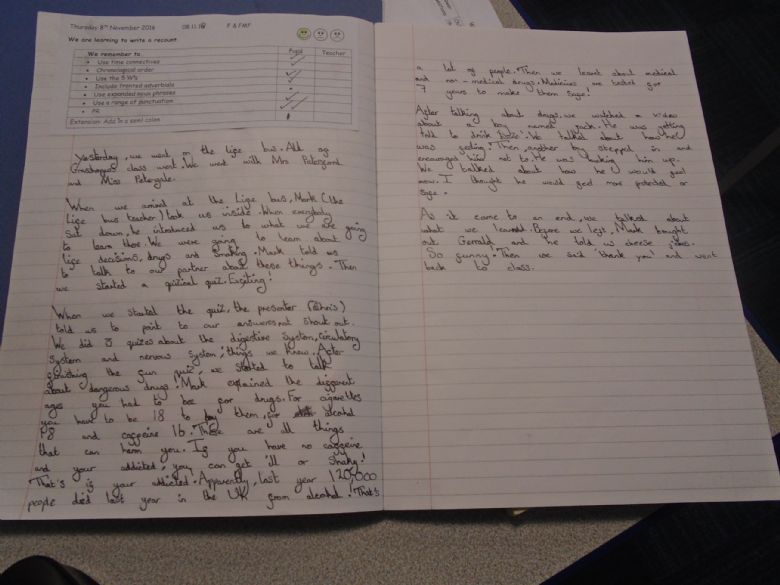 Thursday 8th November 2018 08.11.18 F & FMF
We are learning to write a recount.
We remember to: Pupil Teacher
• Use time connectives
• Chronological order
• Use the 5 W's
• Include fronted adverbials
• Use expanded noun phrases
• Use a range of punctuation
Extension: Add in a semi colon
Yesterday, we went on the life bus. All of
Grasshoppers class went. We went with Mrs
and Miss Petergale.
When we arrived at the Life bus, Mark (the
life bus teacher) took us inside. When everybody
sat down, he introduced us to what we are going
to learn there. We were going to learn about
life decisions, drugs and smoking. Mark told us
to talk to our partner about these things. Then
we started a quizical quiz. Exciting!
When we started the quiz, the presenter (Chris)
told us to point to our answers not shout out.
We did 3 quizes about the digestive system, circulatory
system and nervous system; things we knew. After
finishing the fun quiz, we started to talk
about dangerous drugs! Mark explained the different
ages you had to be for drugs. For cigarettes
you have to be 18 to buy them, for alcohol
18 and caffeine 16. These are all things
that can harm you. If you have no caffeine
and your addicted, you can get ill or shaky!
That's if your addicted. Apparently, last year 120,000
people died last year in the UK from alcohol! That's
a lot of people. Then we learnt about medical
and non-medical drugs. Medicines are tested for
7 years to make them safe!
After talking about drugs, we watched a video
about a boy named Jack. He was getting
told to drink. We talked about how he
was feeling. Then, another boy stepped in and
encouraged him not to. He was sticking him up.
We talked about how he would feel
now. I thought he would feel more protected or
safe.
As it came to an end, we talked about
what we learned. Before we left, Mark bought
out Gerrald and he told us cheese jokes.
So funny. Then we said 'thank you' and went
back to class.